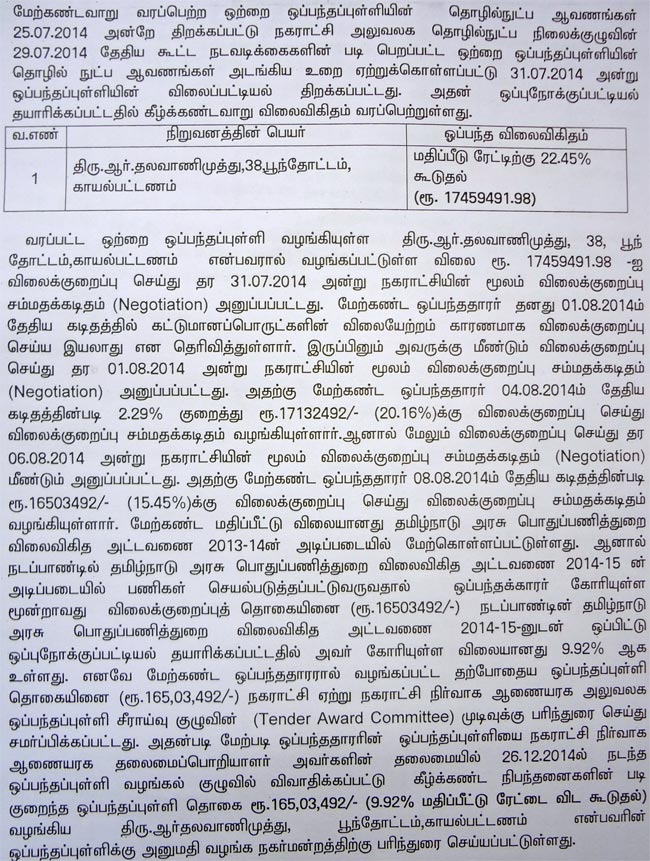 மேற்கண்டவாறு வரப்பெற்ற ஒற்றை ஒப்பந்தப்புள்ளியின் தொழில்நுட்ப ஆவணங்கள்
25.07.2014 அன்றே திறக்கப்பட்டு நகராட்சி அலுவலக தொழில்நுட்ப நிலைக்குழுவின்
29.07.2014 தேதிய கூட்ட நடவடிக்கைகளின் படி பெறப்பட்ட ஒற்றை ஒப்பந்தப்புள்ளியின்
தொழில் நுட்ப ஆவணங்கள் அடங்கிய உறை ஏற்றுக்கொள்ளப்பட்டு 31.07.2014 அன்று
ஒப்பந்தப்புள்ளியின் விலைப்பட்டியல் திறக்கப்பட்டது. அதன் ஒப்புநோக்குப்பட்டியல்
தயாரிக்கப்பட்டதில் கீழ்க்கண்டவாறு விலைவிகிதம் வரப்பெற்றுள்ளது.
வ.எண் நிறுவனத்தின் பெயர் ஒப்பந்த விலைவிகிதம்
1 திரு.ஆர்.தலவாணிமுத்து,38,பூந்தோட்டம், காயல்பட்டணம் மதிப்பீடு ரேட்டிற்கு 22.45% கூடுதல் (ரூ. 17459491.98)
வரப்பட்ட ஒற்றை ஒப்பந்தப்புள்ளி வழங்கியுள்ள திரு.ஆர்.தலவாணிமுத்து, 38, பூந்
தோட்டம்,காயல்பட்டணம் என்பவரால் வழங்கப்பட்டுள்ள விலை ரூ. 17459491.98 -ஐ
விலைக்குறைப்பு செய்து தர 31.07.2014 அன்று நகராட்சியின் மூலம் விலைக்குறைப்பு
சம்மதக்கடிதம் (Negotiation) அனுப்பப்பட்டது. மேற்கண்ட ஒப்பந்ததாரர் தனது 01.08.2014ம்
தேதிய கடிதத்தில் கட்டுமானப்பொருட்களின் விலையேற்றம் காரணமாக விலைக்குறைப்பு
செய்ய இயலாது என தெரிவித்துள்ளார். இருப்பினும் அவருக்கு மீண்டும் விலைக்குறைப்பு
செய்து தர 01.08.2014 அன்று நகராட்சியின் மூலம் விலைக்குறைப்பு சம்மதக்கடிதம்
(Negotiation) அனுப்பப்பட்டது. அதற்கு மேற்கண்ட ஒப்பந்ததாரர் 04.08.2014ம் தேதிய
கடிதத்தின்படி 2.29% குறைத்து ரூ.17132492/- (20.16%)க்கு விலைக்குறைப்பு செய்து
விலைக்குறைப்பு சம்மதக்கடிதம் வழங்கியுள்ளார்.ஆனால் மேலும் விலைக்குறைப்பு செய்து தர
06.08.2014 அன்று நகராட்சியின் மூலம் விலைக்குறைப்பு சம்மதக்கடிதம் (Negotiation)
மீண்டும் அனுப்பப்பட்டது. அதற்கு மேற்கண்ட ஒப்பந்ததாரர் 08.08.2014ம் தேதிய கடிதத்தின்படி
ரூ.16503492/- (15.45%)க்கு விலைக்குறைப்பு செய்து விலைக்குறைப்பு சம்மதக்கடிதம்
வழங்கியுள்ளார். மேற்கண்ட மதிப்பீட்டு விலையானது தமிழ்நாடு அரசு பொதுப்பணித்துறை
விலைவிகித அட்டவணை 2013-14ன் அடிப்படையில் மேற்கொள்ளப்பட்டுள்ளது. ஆனால்
நடப்பாண்டில் தமிழ்நாடு அரசு பொதுப்பணித்துறை விலைவிகித அட்டவணை 2014-15 ன்
அடிப்படையில் பணிகள் செயல்படுத்தப்பட்டுவருவதால் ஒப்பந்தக்காரர் கோரியுள்ள
மூன்றாவது விலைக்குறைப்புத் தொகையினை (ரூ.16503492/-) நடப்பாண்டின் தமிழ்நாடு
அரசு பொதுப்பணித்துறை விலைவிகித அட்டவணை 2014-15-னுடன் ஒப்பிட்டு
ஒப்புநோக்குப்பட்டியல் தயாரிக்கப்பட்டதில் அவர் கோரியுள்ள விலையானது 9.92% ஆக
உள்ளது. எனவே மேற்கண்ட ஒப்பந்ததாரரால் வழங்கப்பட்ட தற்போதைய ஒப்பந்தப்புள்ளி
தொகையினை (ரூ.165,03,492/-) நகராட்சி ஏற்று நகராட்சி நிர்வாக ஆணையரக அலுவலக
ஒப்பந்தப்புள்ளி சீராய்வு குழுவின் (Tender Award Committee) முடிவுக்கு பரிந்துரை செய்து
சமர்ப்பிக்கப்பட்டது. அதன்படி மேற்படி ஒப்பந்ததாரரின் ஒப்பந்தப்புள்ளியை நகராட்சி நிர்வாக
ஆணையரக தலைமைப்பொறியாளர் அவர்களின் தலைமையில் 26.12.2014ல் நடந்த
ஒப்பந்தப்புள்ளி வழங்கல் குழுவில் விவாதிக்கப்பட்டு கீழ்க்கண்ட நிபந்தனைகளின் படி
குறைந்த ஒப்பந்தப்புள்ளி தொகை ரூ.165,03,492/- (9.92% மதிப்பீட்டு ரேட்டை விட கூடுதல்)
வழங்கிய திரு.ஆர்தலவாணிமுத்து, பூந்தோட்டம்,காயல்பட்டணம் என்பவரின்
ஒப்பந்தப்புள்ளிக்கு அனுமதி வழங்க நகர்மன்றத்திற்கு பரிந்துரை செய்யப்பட்டுள்ளது.